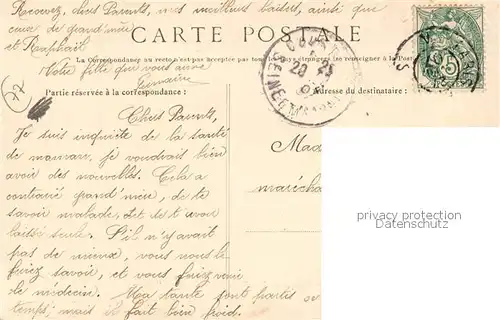 Recevez, chers Parents, mes meilleurs baisers, ainsi que
ceux de grand'mère
et Raphaël
CARTE POSTALE
La Correspondance au recto n'est pas acceptée par tous
renseigner à la Post
Votre fille qui vous aime
Germaine
Partie réservée à la correspondance :
Adresse du destinataire :
Chers Parents,
Je suis inquiète de la santé
de maman, je voudrais bien
avoir des nouvelles. Cela a
contrarié grand'mère, de te
savoir malade, et de t'avoir
laissée seule. S'il n'y avait
pas de mieux, vous nous le
feriez savoir, et vous feriez venir
le médecin. Ma tante sont parties
temps; mais il fait bien froid.
Mad
maréchal
privacy protection
Datenschutz